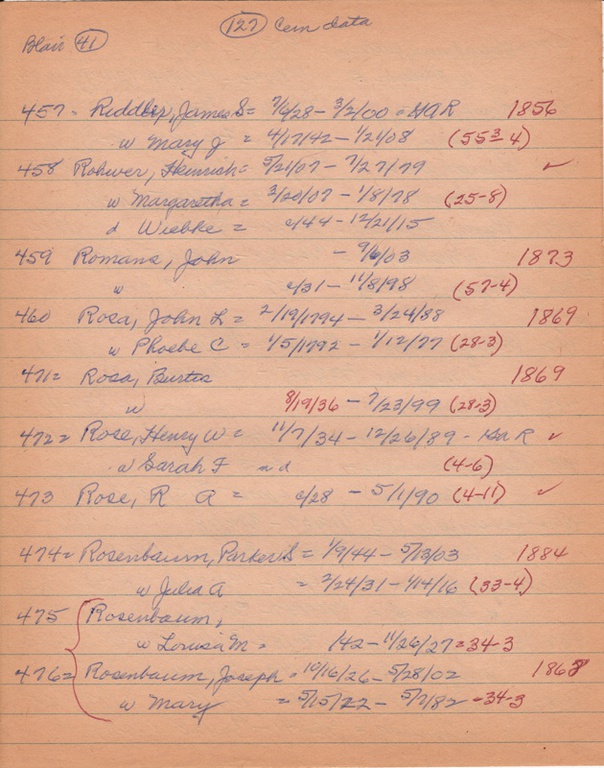 127 Cem data
Blair 41
457 - Riddler, James S = 7/6/28 - 3/2/00 = GAR 1856
w Mary J = 4/17/42 - 1/21/08 (553-4)
458 Rohwer, Heinrich = 5/21/07 - 7/27/79 ✓
w Margaretha = 3/20/07 - 1/8/78 (25-8)
d Wiebke = c/44 - 12/21/15
459 Romans, John - 9/6/03 1873
w c/31 - 11/8/98 (57-4)
460 Rosa, John L = 2/19/1794 - 3/24/88 1869
w Phoebe C = 1/5/1792 - 1/12/77 (28-3)
471= Rosa, Burtis 1869
w 8/19/36 - 7/23/99 (28-3)
472= Rose, Henry W = 11/7/34 - 12/26/89 - GAR ✓
w Sarah F nd (4-6)
473 Rose, R A = c/28 - 5/1/90 (4-11) ✓
474= Rosenbaum, Parker S = 1/9/44 - 5/13/03 1884
w Julia A = 2/24/31 - 1/14/16 (33-4)
475 Rosenbaum,
w Louisa M = 142 - 11/26/27 = 34-3
476= Rosenbaum, Joseph = 10/16/26 - 5/28/02 1868
w Mary = 5/15/22 - 5/7/82 = 34-3